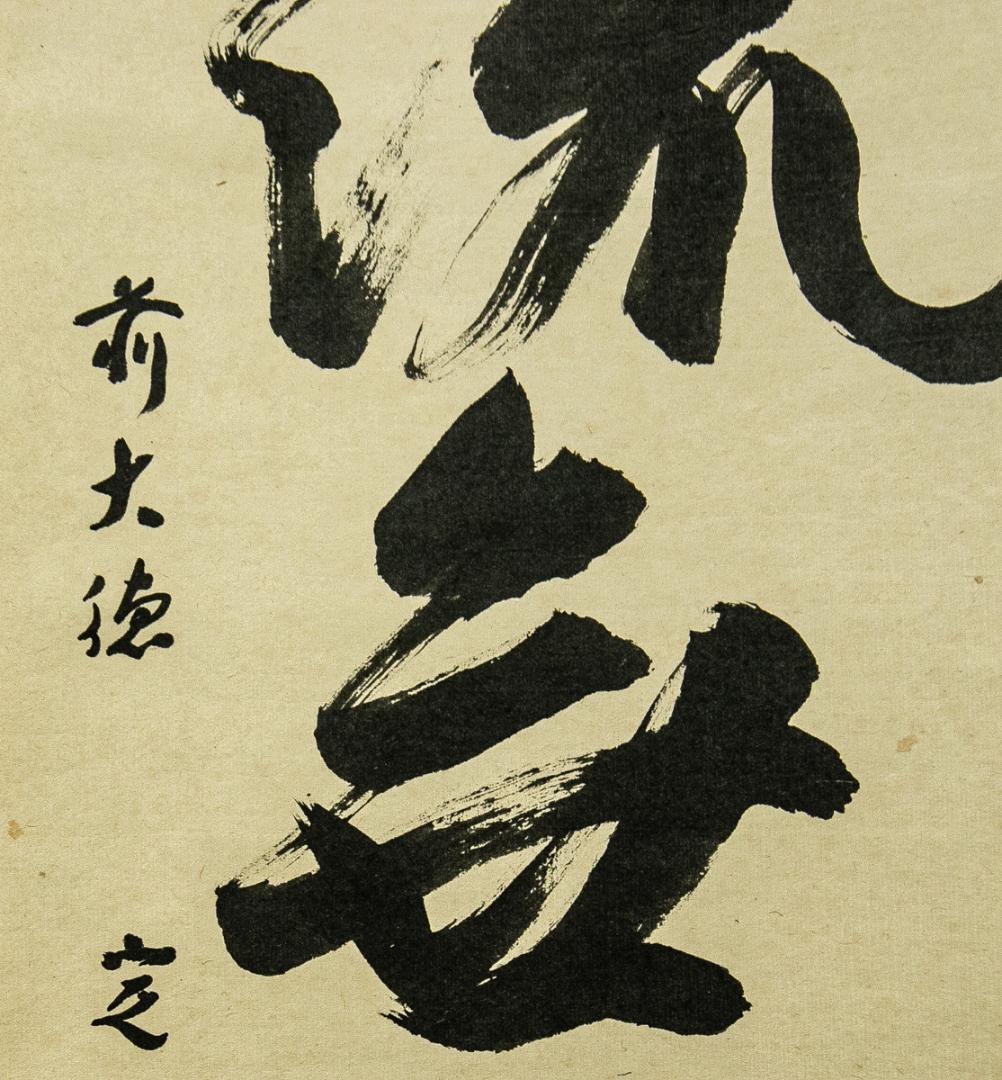 流無
前大徳 定